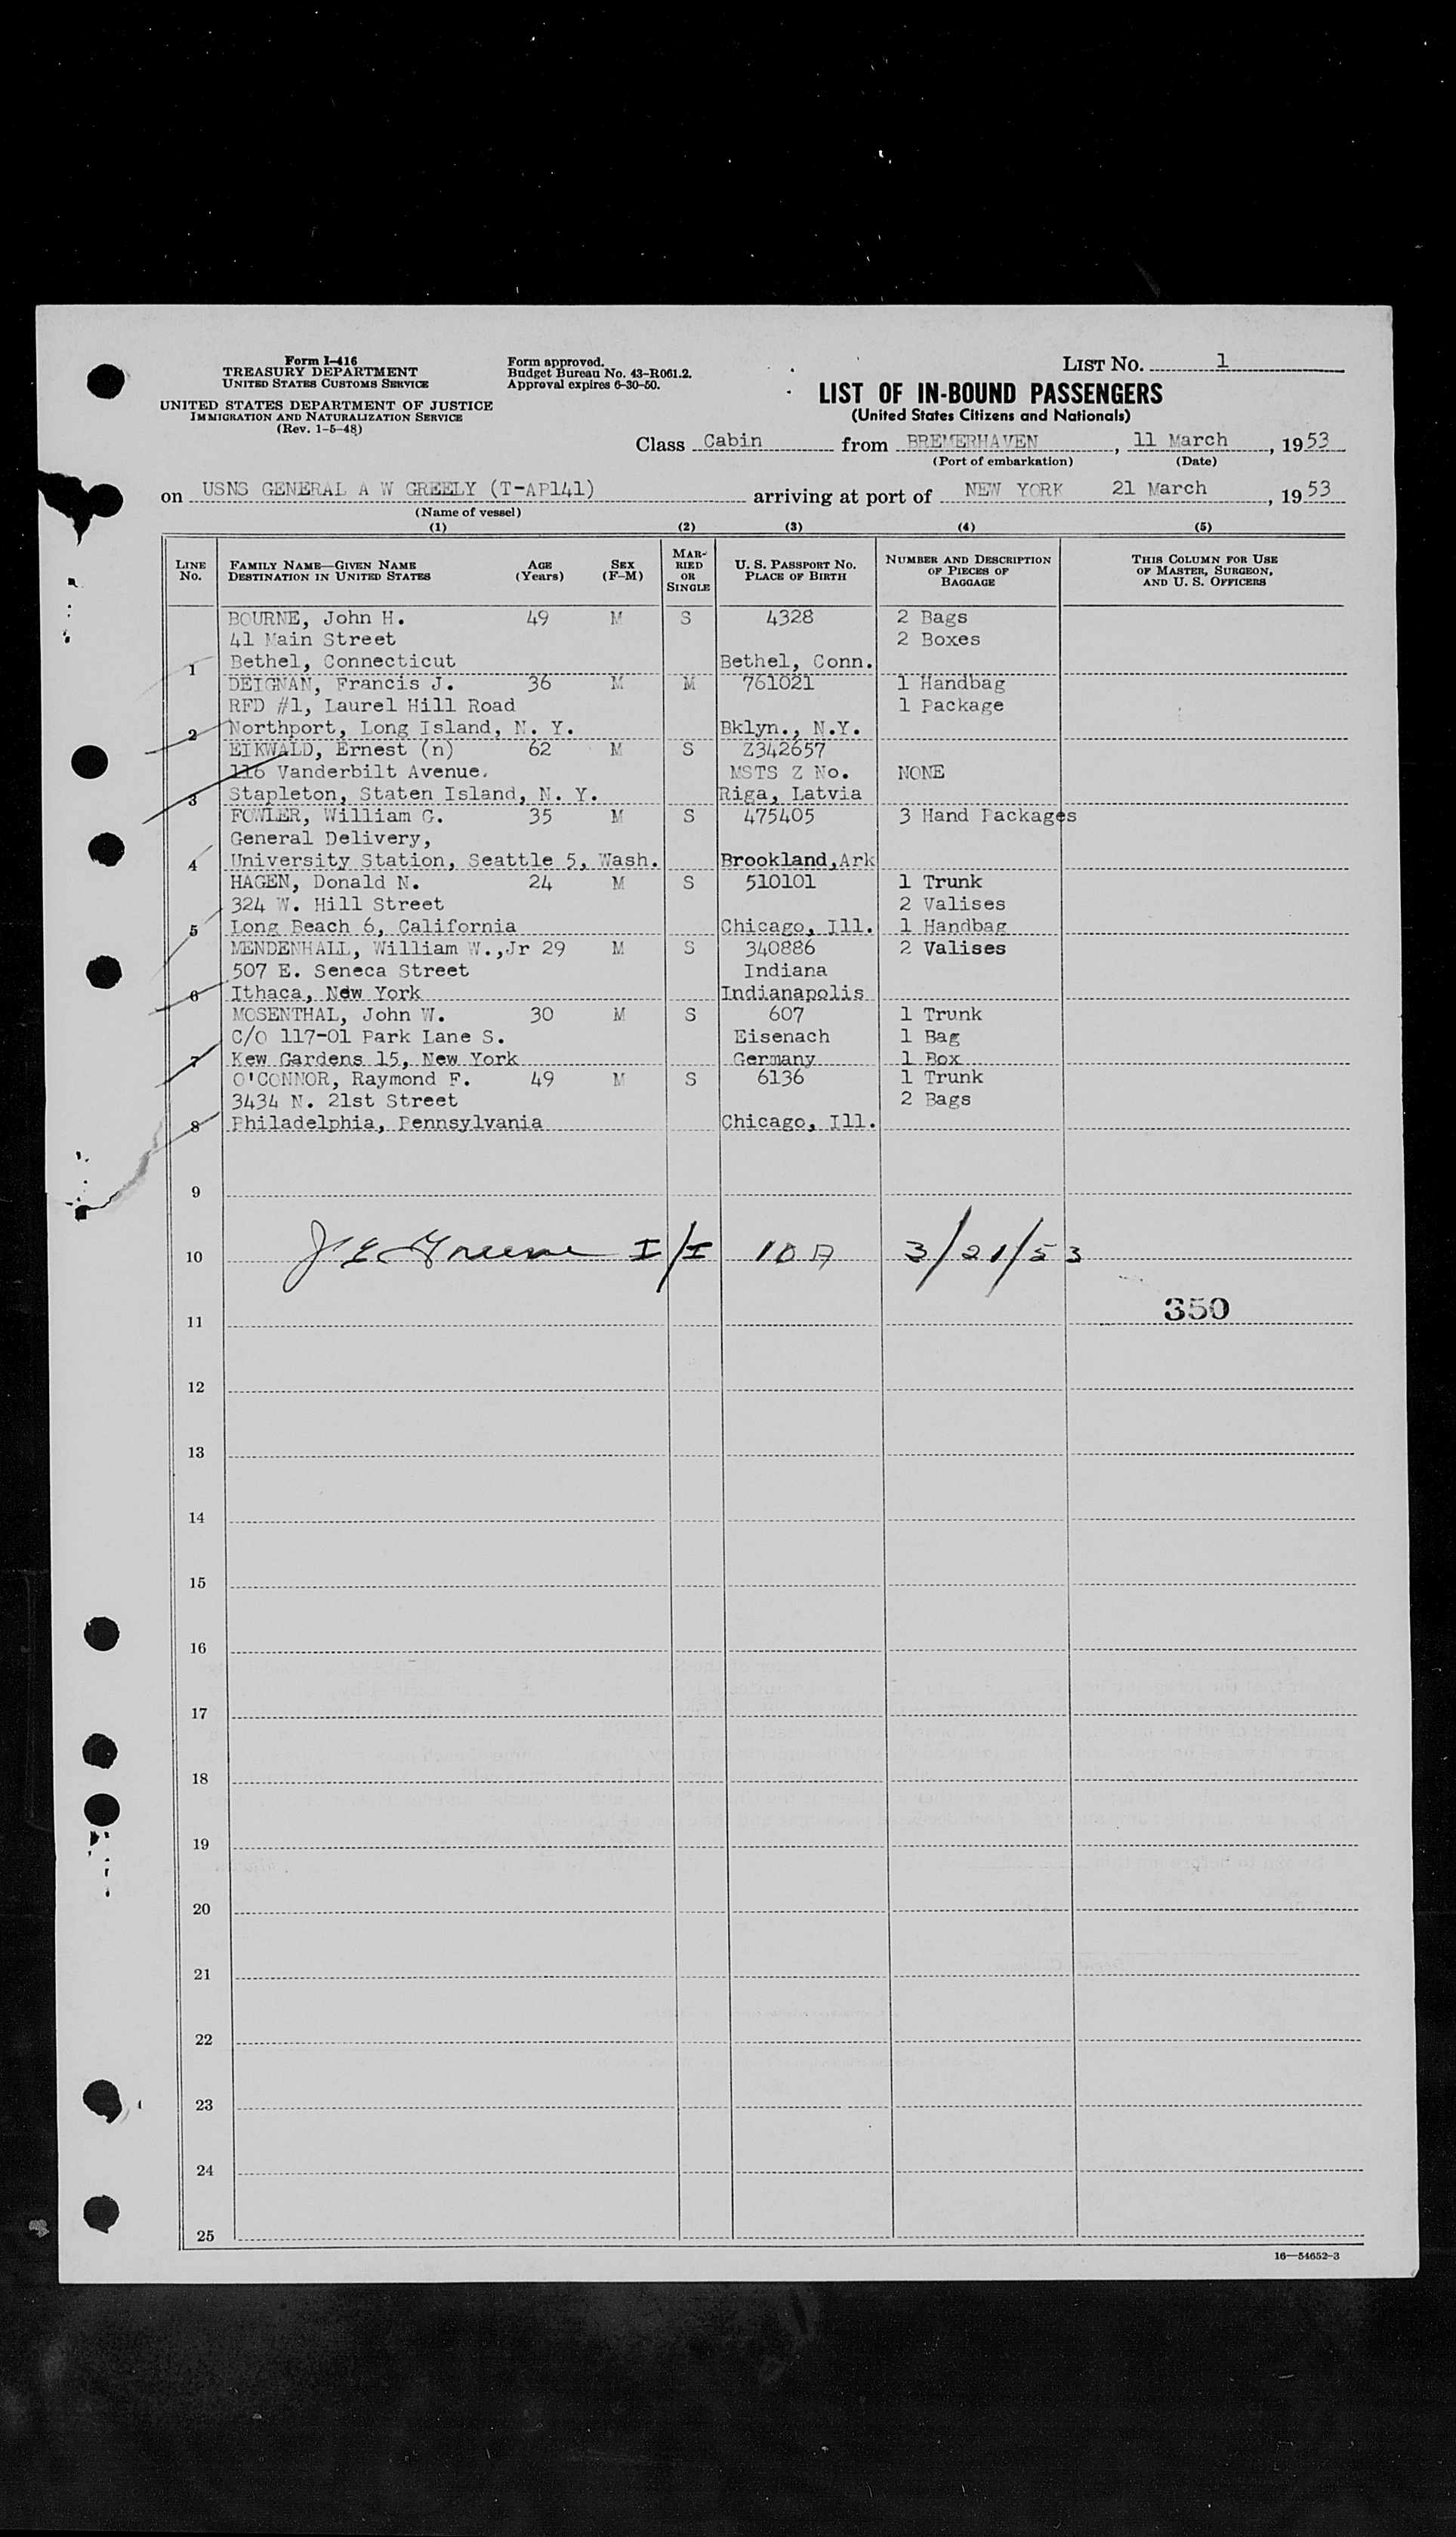 Form I-416
TREASURY DEPARTMENT
UNITED STATES CUSTOMS SERVICE
UNITED STATES DEPARTMENT OF JUSTICE
IMMIGRATION AND NATURALIZATION SERVICE
(Rev. 1-5-48)
Form approved.
Budget Bureau No. 43-R061.2.
Approval expires 6-30-50.
LIST NO. 1
LIST OF IN-BOUND PASSENGERS
(United States Citizens and Nationals)
Class Cabin from BREMERHAVEN, 11 March, 1953
(Port of embarkation) (Date)
on USNS GENERAL A W GREELY (T-AP141) arriving at port of NEW YORK 21 March, 1953
(Name of vessel)
(1) (2) (3) (4) (5)
LINE NO. FAMILY NAME—GIVEN NAME DESTINATION IN UNITED STATES AGE (Years) SEX (F-M) MARRIED OR SINGLE U. S. PASSPORT NO. PLACE OF BIRTH NUMBER AND DESCRIPTION OF PIECES OF BAGGAGE THIS COLUMN FOR USE OF MASTER, SURGEON, AND U. S. OFFICERS
BOURNE, John H. 49 M S 4328 2 Bags
41 Main Street 2 Boxes
1 Bethel, Connecticut Bethel, Conn.
DEIGNAN, Francis J. 36 M M 761021 1 Handbag
RFD #1, Laurel Hill Road 1 Package
2 Northport, Long Island, N. Y. Bklyn., N.Y.
EIKWALD, Ernest (n) 62 M S Z342657
116 Vanderbilt Avenue. MSTS Z No. NONE
3 Stapleton, Staten Island, N. Y. Riga, Latvia
FOWLER, William G. 35 M S 475405 3 Hand Packages
General Delivery,
4 University Station, Seattle 5, Wash. Brookland,Ark
HAGEN, Donald N. 24 M S 510101 1 Trunk
324 W. Hill Street 2 Valises
5 Long Beach 6, California Chicago, Ill. 1 Handbag
MENDENHALL, William W.,Jr 29 M S 340886 2 Valises
507 E. Seneca Street Indiana
6 Ithaca, New York Indianapolis
MOSENTHAL, John W. 30 M S 607 1 Trunk
C/O 117-01 Park Lane S. Eisenach 1 Bag
7 Kew Gardens 15, New York Germany 1 Box
O'CONNOR, Raymond F. 49 M S 6136 1 Trunk
3434 N. 21st Street 2 Bags
8 Philadelphia, Pennsylvania Chicago, Ill.
9
10 J E Greene I/I 10A 3/21/53
350
11
12
13
14
15
16
17
18
19
20
21
22
23
24
25
16—54652-3